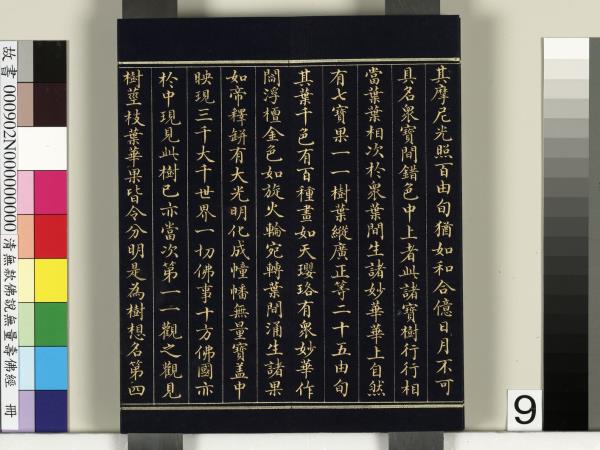 其摩尼光照百由旬猶如和合億日月不可
具名衆寶間錯色中上者此諸寶樹行行相
當葉葉相次於衆葉間生諸妙華華上自然
有七寶果一一樹葉縱廣正等二十五由旬
其葉千色有百種畫如天瓔珞有衆妙華作
閻浮檀金色如旋火輪宛轉葉間涌生諸果
如帝釋缾有大光明化成幢幡無量寶盖中
映現三千大千世界一切佛事十方佛國亦
於中現見此樹已亦當次第一一觀之觀見
樹莖枝葉華果皆令分明是為樹想名第四
故書 000902N000000000 清無款佛說無量壽佛經 冊
9